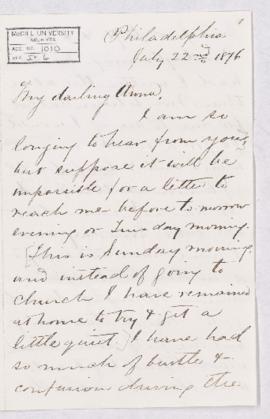 McGILL UNIVERSITY
ARCHIVES
ACC. NO. 1010
REF.
Philadelphia
July 22nd 1876
My darling Anna,
I am so
longing to hear from you,
but suppose it will be
impossible for a letter to
reach me before to morrow
evening or Tuesday morning.
This is Sunday morning
and instead of going to
church I have remained
at home to try & get a
little quiet. I have had
so much of bustle &
confusion during the